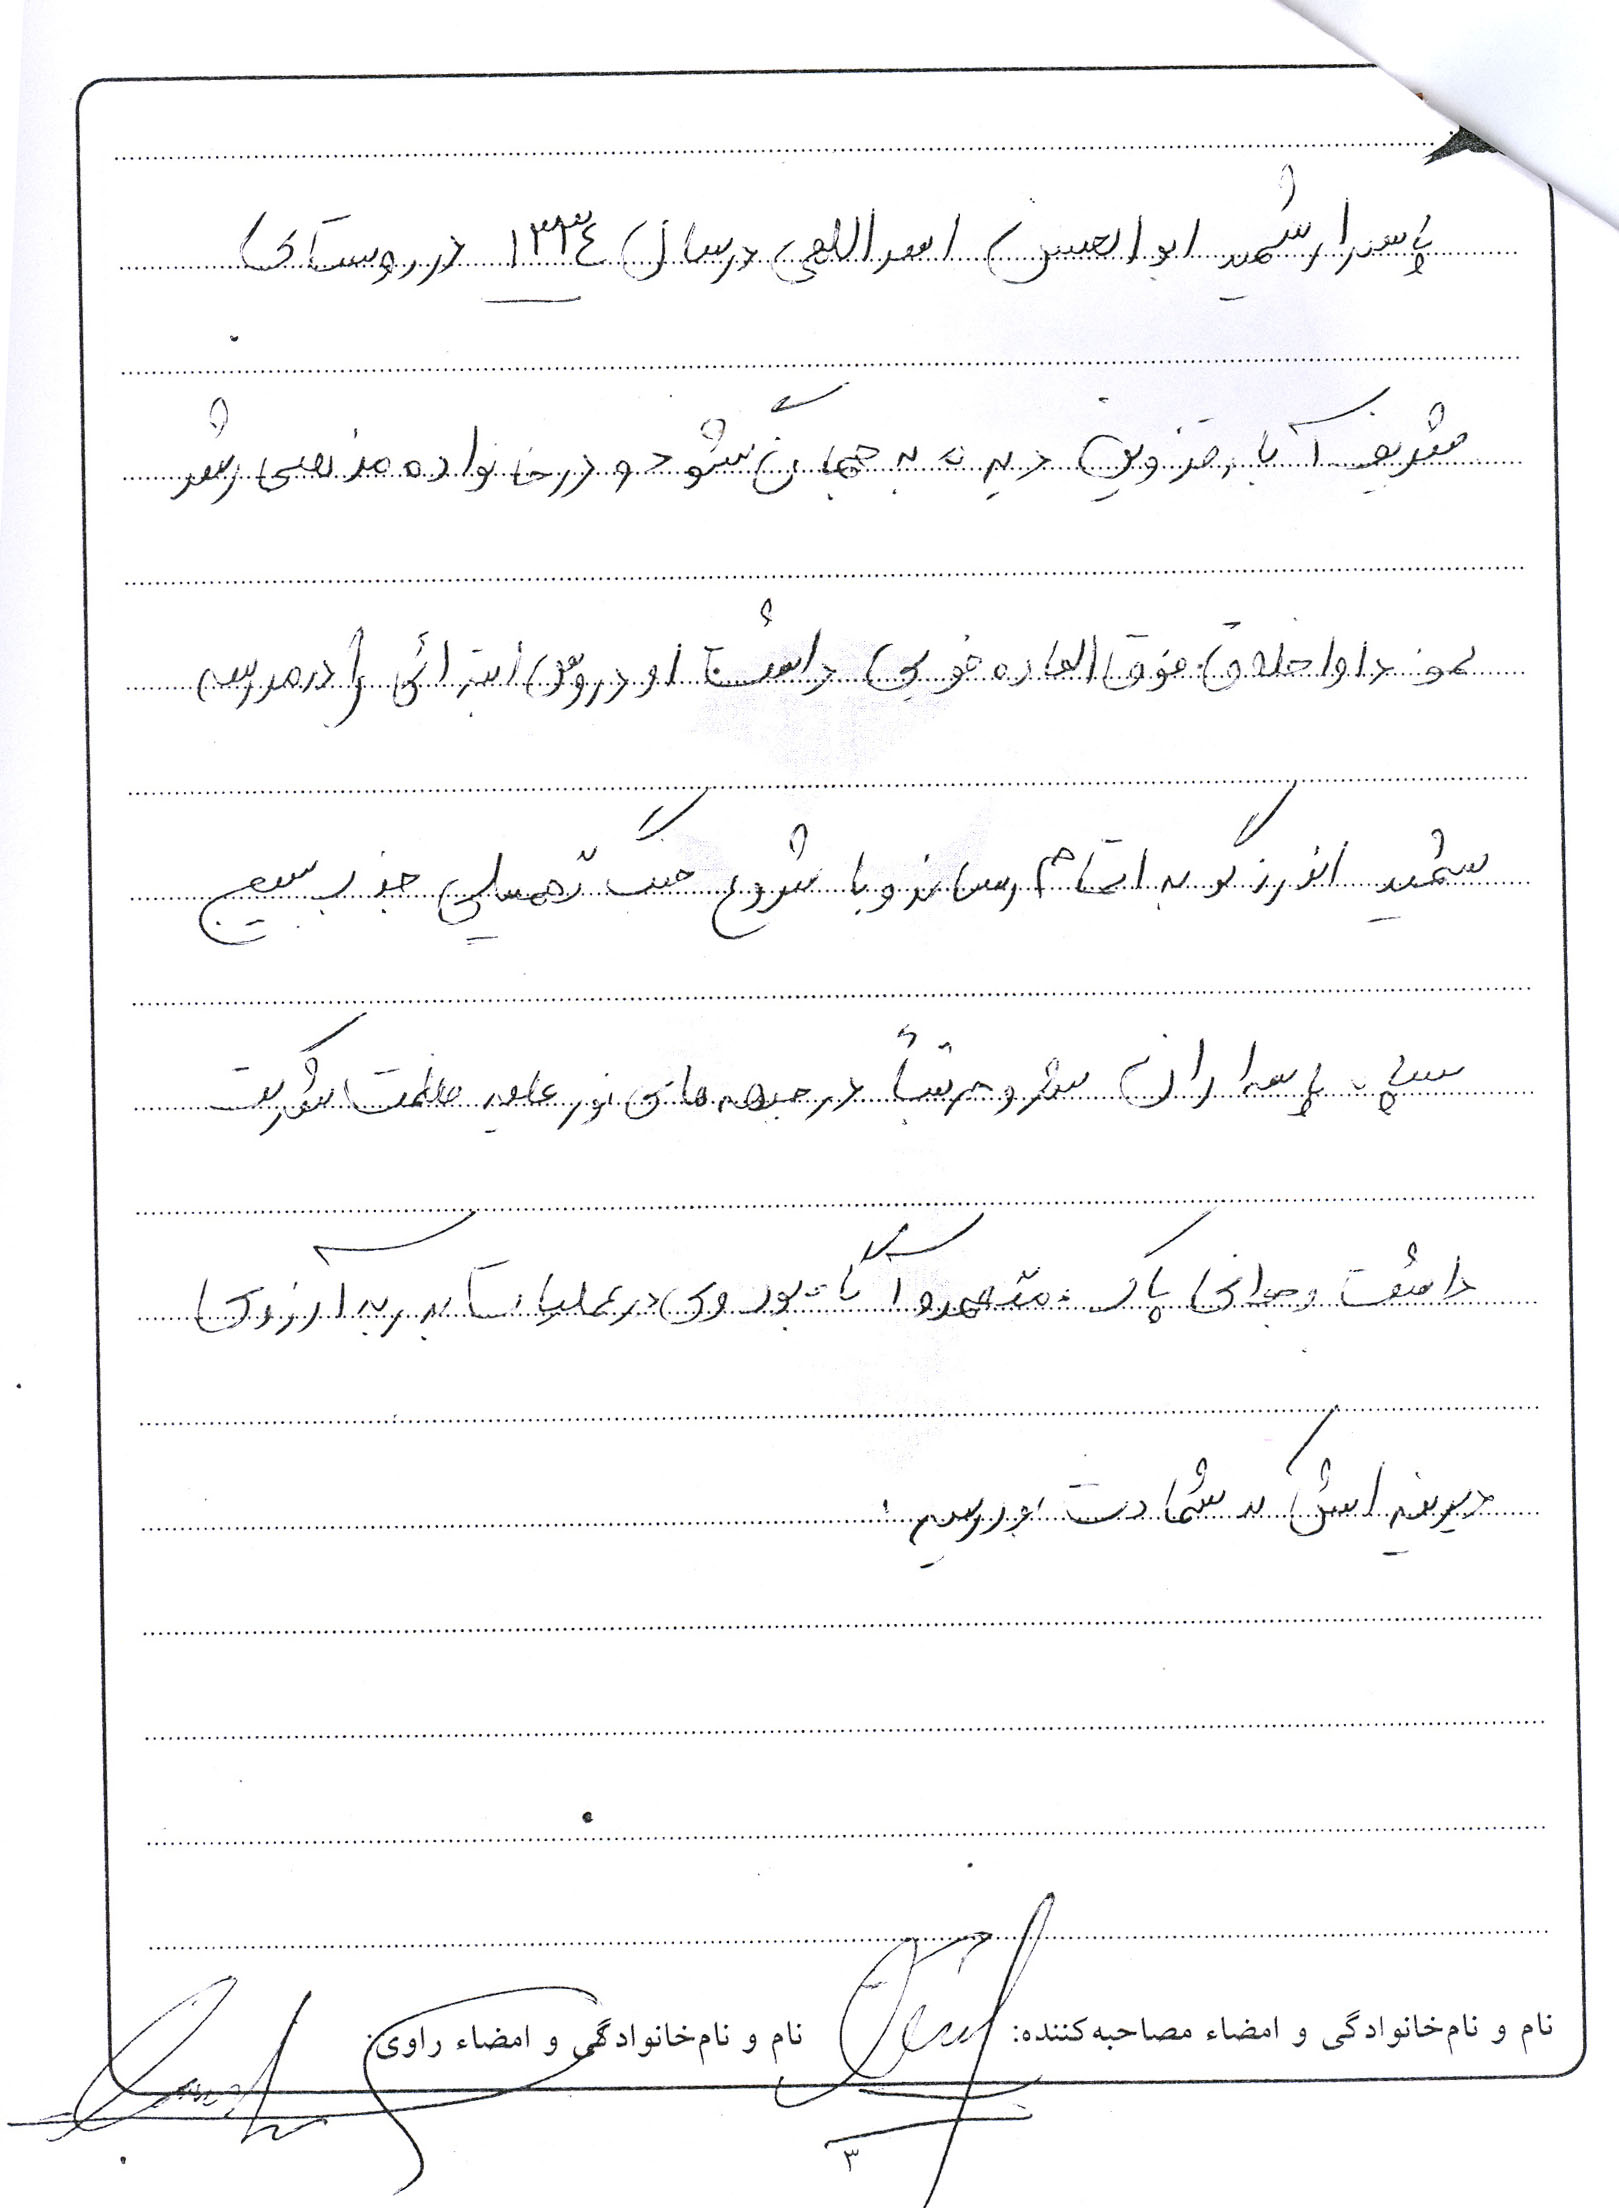 پاسدار شهید ابوالحسن اسداللهی در سال ۱۳۳۴ در روستای
شریف آباد قزوین دیده به جهان گشود و در خانواده مذهبی رشد
نمود او اخلاق فوق العاده خوبی داشت او دروس ابتدائی را در مدرسه
شهید اندرزگو به اتمام رساند و با شروع جنگ تحمیلی جذب بسیج
سپاه پاسداران شد و مرتباً در جبهه های نور علیه ظلمت شرکت
داشت وجوانی پاک ، متعهد و آگاه بود وی در عملیات بدر به آرزوی
دیرینه اش که شهادت بود رسید .
نام و نام‌خانوادگی و امضاء مصاحبه‌کننده:
نام و نام‌خانوادگی و امضاء راوی:
۳